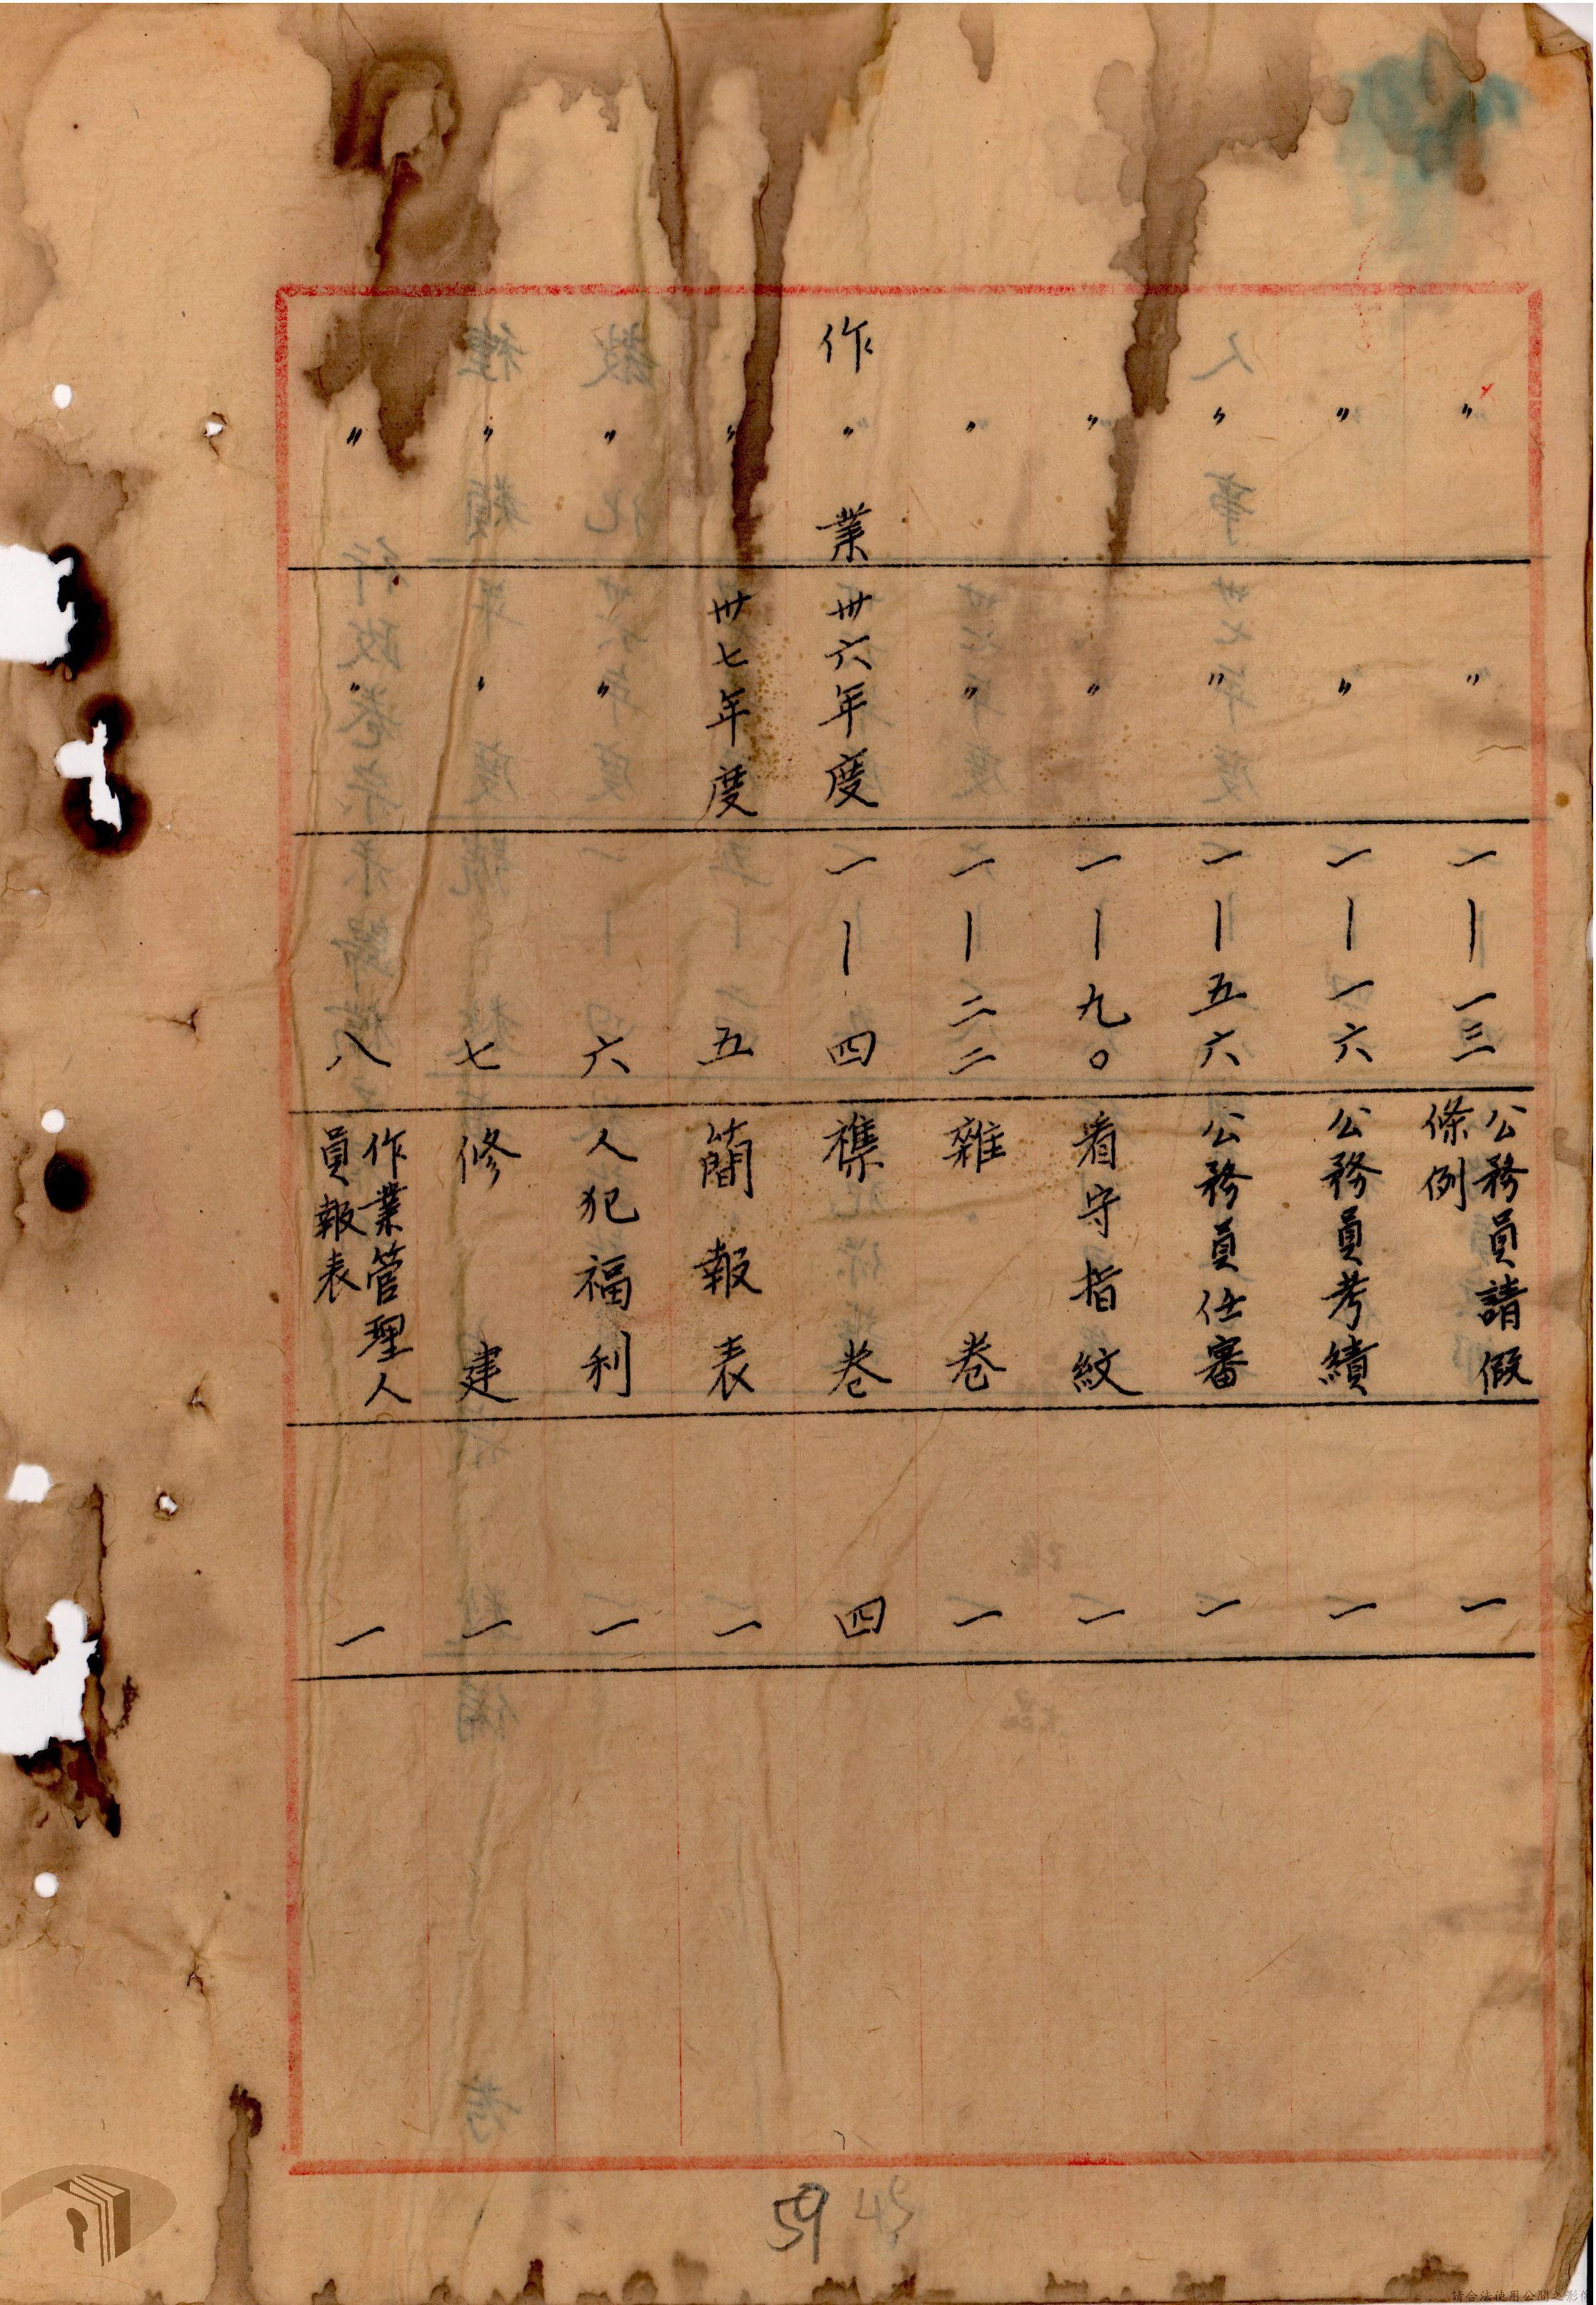 〃 〃 一—一三 公務員請假條例 一
〃 〃 一—一六 公務員考績 一
〃 〃 一—五六 公務員任審 一
〃 〃 一—九〇 看守指紋 一
〃 〃 一—二二 雜卷 一
作〃業 卅六年度 一—四 襍卷 四
〃 卅七年度 五 簡報表 一
〃 〃 六 人犯福利 一
〃 〃 七 修建 一
〃 〃 八 作業管理人員報表 一
59
請合法使用公開之影像